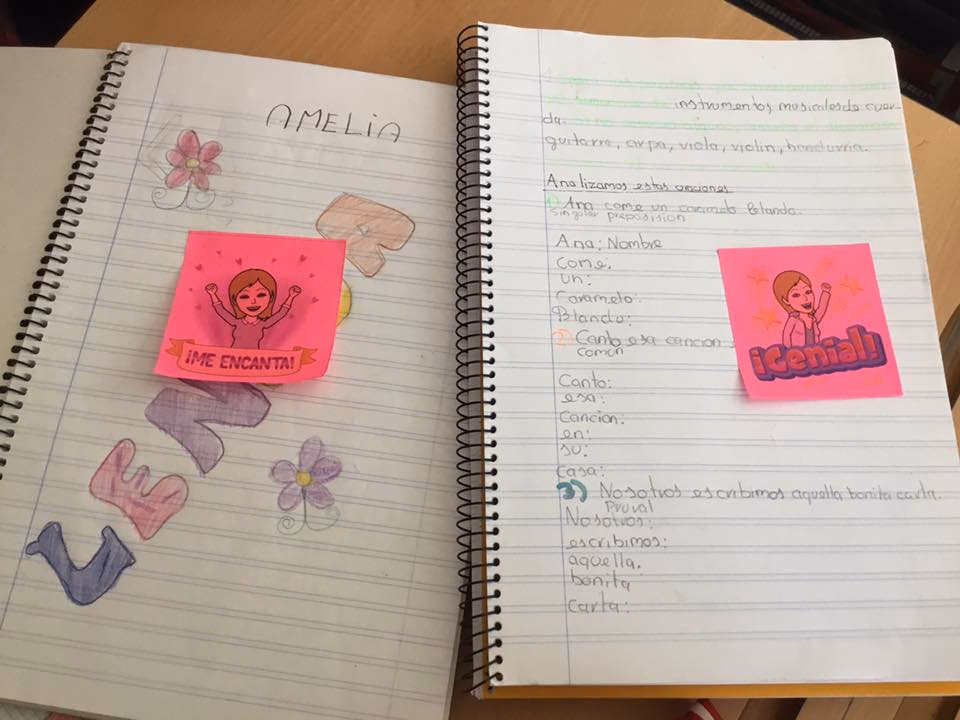 AMELIA
¡ME ENCANTA!
instrumentos musicales de cuer-
da.
guitarra, arpa, viola, violin, bandurria.
Analizamos estas oraciones
1) Ana come un caramelo Blando.
Singular preposision
Ana: Nombre
Come:
Un:
Caramelo:
Blando:
2) Canto esa cancion
común
Canto:
esa:
Cancion:
en:
su:
casa:
3) Nosotros escribimos aquella bonita carta.
Nosotros:
escribimos:
aquella.
bonita
carta:
¡Genial!